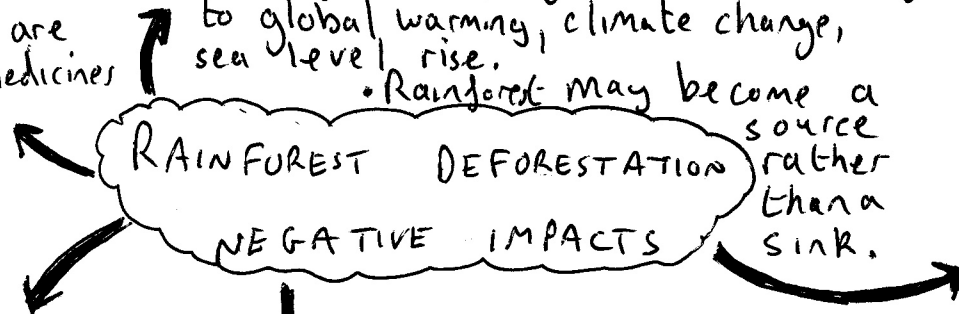 are
to global warming, climate change,
sea level rise.
edicines
• Rainforest may become a
source
rather
than a
sink.
RAINFOREST DEFORESTATION
NEGATIVE IMPACTS